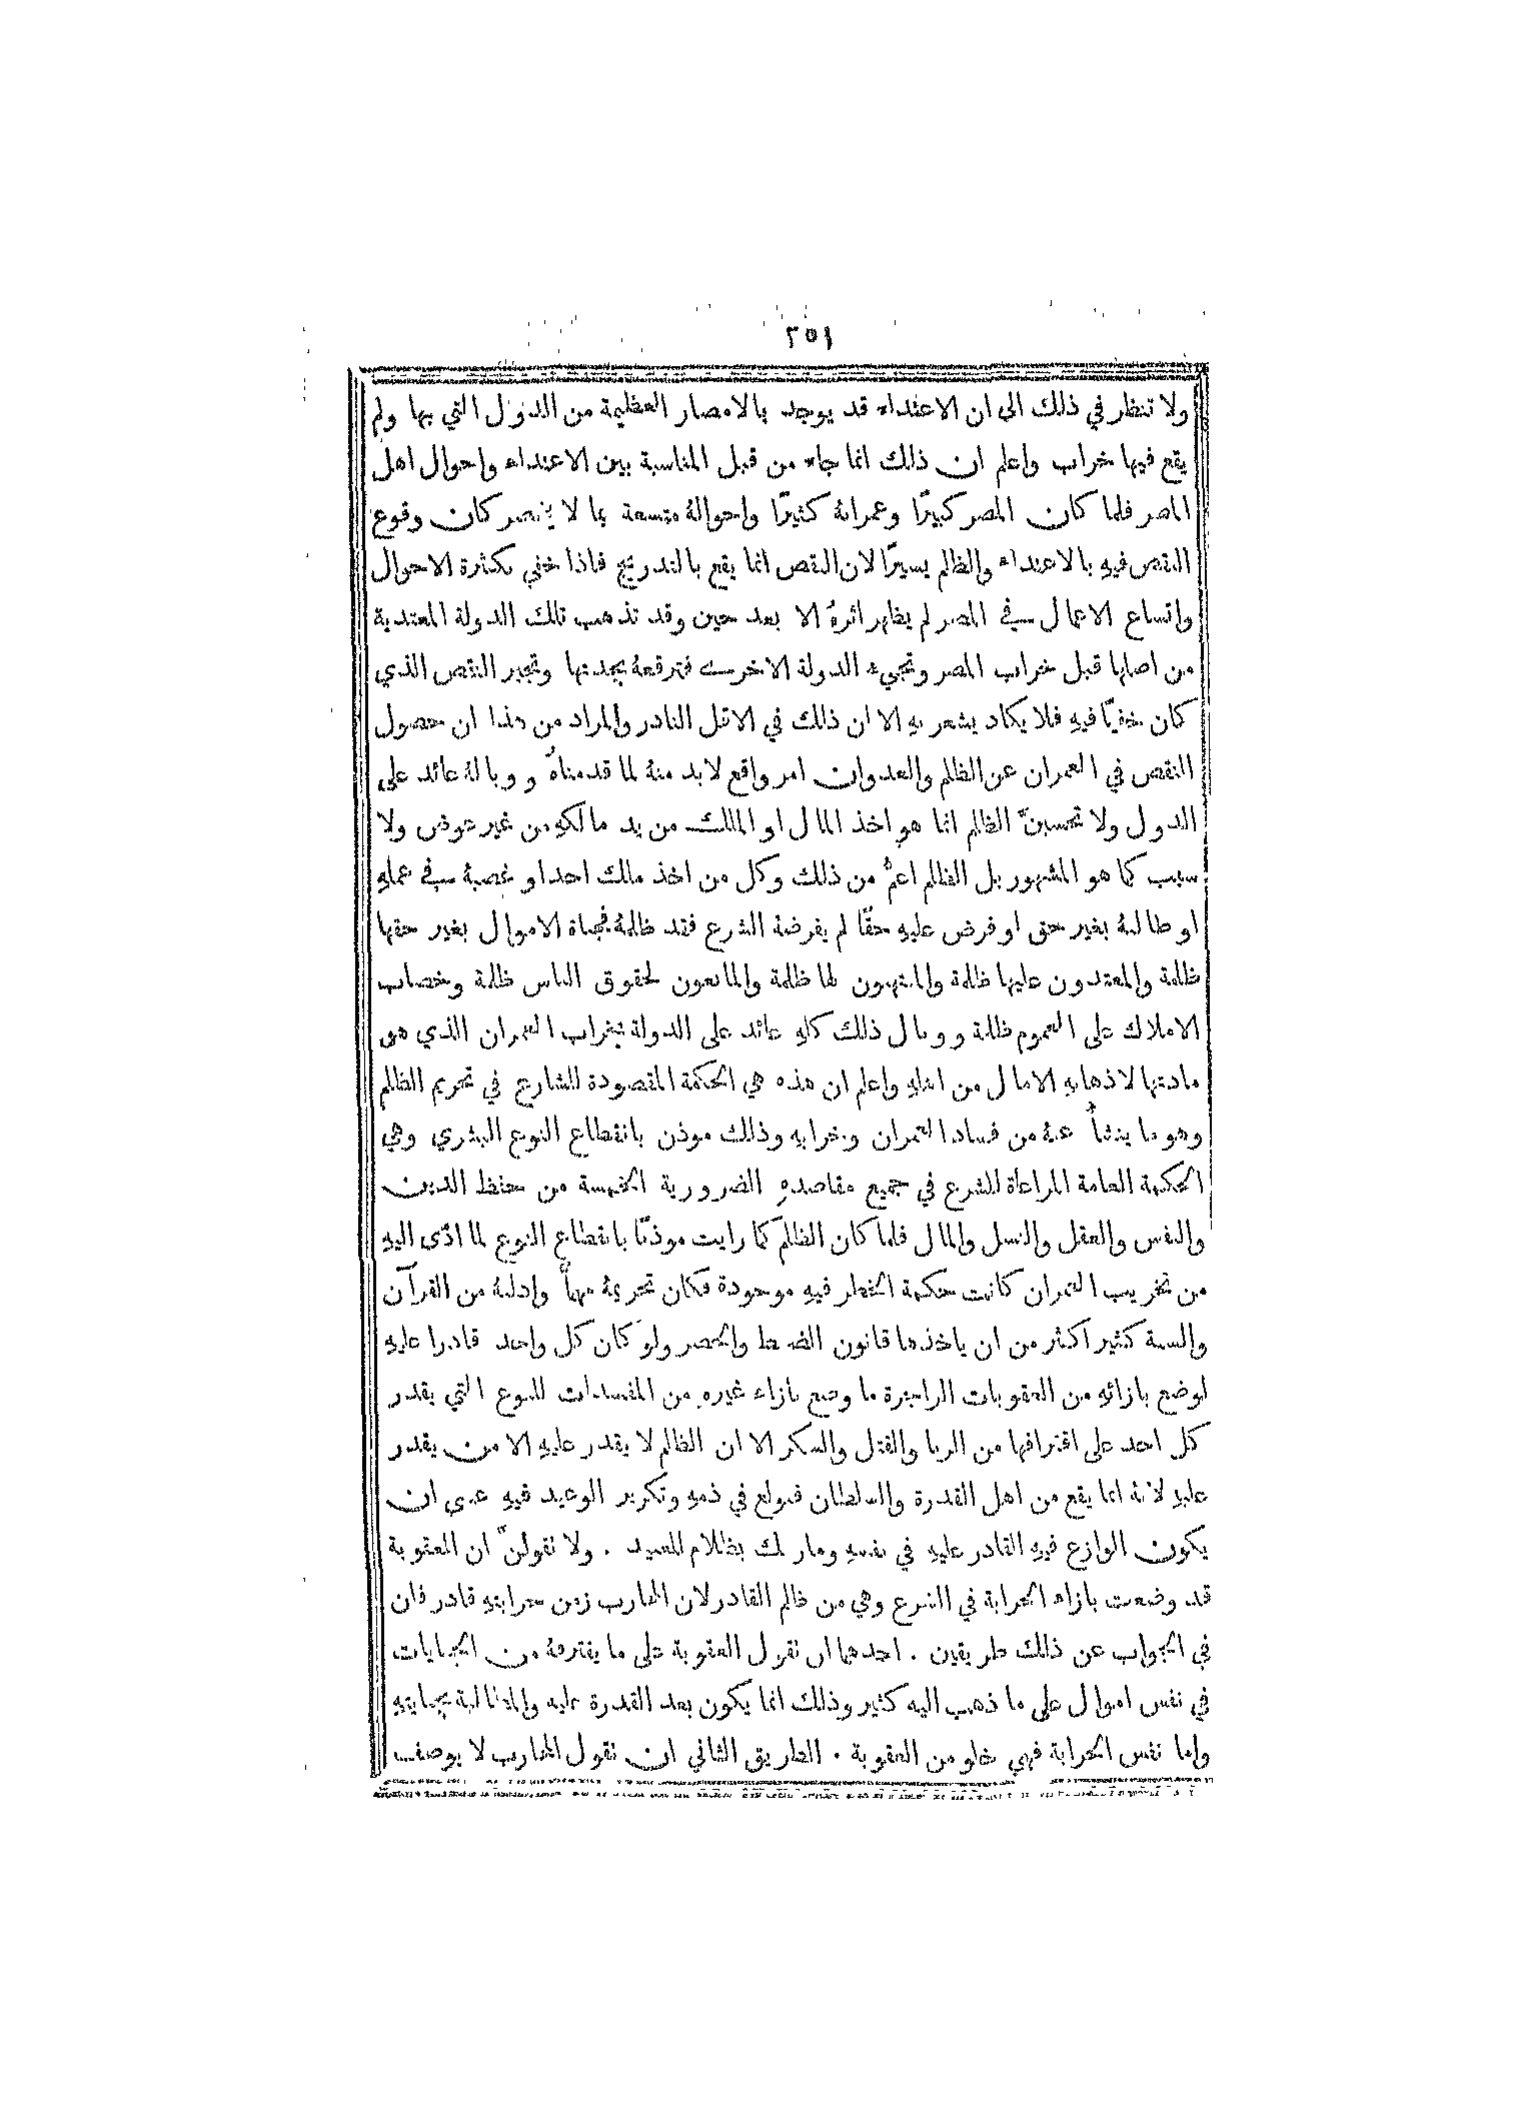 ٢٥١
ولا تنظر في ذلك الى ان الاعتداء قد يوجد بالامصار العظيمة من الدول التي بها ولم
يقع فيها خراب واعلم ان ذلك انما جاء من قبل المناسبة بين الاعتداء واحوال اهل
المصر فلما كان المصر كبيرًا وعمرانهُ كثيرًا واحوالهُ متسعة بما لا ينحصر كان وقوع
النقص فيهِ بالاعتداء والظلم يسيرًا لان النقص انما يقع بالتدريج فاذا خفي بكثرة الاحوال
واتساع الاعمال في المصر لم يظهر اثرهُ الا بعد حين وقد تذهب تلك الدولة المعتدية
من اصلها قبل خراب المصر وتجيء الدولة الاخرى فترقعهُ بجدتها وتجبر النقص الذي
كان خفيًا فيهِ فلا يكاد يشعر بهِ الا ان ذلك في الاقل النادر والمراد من هذا ان حصول
النقص في العمران عن الظلم والعدوان امر واقع لابد منهُ لما قدمناهُ ووبالهُ عائد على
الدول ولا تحسبنّ الظلم انما هو اخذ المال او الملك من يد مالكهِ من غير عوض ولا
سبب كما هو المشهور بل الظلم اعمُّ من ذلك وكل من اخذ ملك احد او غصبهُ في عملهِ
او طالبهُ بغير حق او فرض عليهِ حقًّا لم يفرضهُ الشرع فقد ظلمهُ فجباة الاموال بغير حقها
ظلمة والمعتدون عليها ظلمة والمنتهبون لها ظلمة والمانعون لحقوق الناس ظلمة وخصاب
الاملاك على العموم ظلمة ووبال ذلك كلهِ عائد على الدولة بخراب العمران الذي هو
مادتها لاذهابهِ الامال من اهلهِ واعلم ان هذه هي الحكمة المقصودة للشارع في تحريم الظلم
وهو ما ينشأُ عنهُ من فساد العمران وخرابهِ وذلك موذن بانقطاع النوع البشري وهي
الحكمة العامة المراعاة للشرع في جميع مقاصدهِ الضرورية الخمسة من حفظ الدين
والنفس والعقل والنسل والمال فلما كان الظلم كما رايت موذنًا بانقطاع النوع لما ادّى اليهِ
من تخريب العمران كانت حكمة الخطر فيهِ موجودة فكان تحريمهُ مهمًّا وادلتهُ من القرآن
والسنة كثير اكثر من ان ياخذها قانون الضبط والحصر ولو كان كل واحد قادرا عليهِ
لوضع بازائهِ من العقوبات الزاجرة ما وضع بازاء غيرهِ من المفسدات للنوع التي يقدر
كل احد على اقترافها من الزنا والقتل والسكر الا ان الظلم لا يقدر عليهِ الا من يقدر
عليهِ لانهُ انما يقع من اهل القدرة والسلطان فبولغ في ذمهِ وتكرير الوعيد فيهِ عسى ان
يكون الوازع فيهِ للقادر عليهِ في نفسهِ وما ربك بظلام للعبيد . ولا تقولنّ ان العقوبة
قد وضعت بازاء الحرابة في الشرع وهي من ظلم القادر لان المحارب زمن حرابتهِ قادر فان
في الجواب عن ذلك طريقين . احدهما ان تقول العقوبة على ما يقترفهُ من الجنايات
في نفس اموال على ما ذهب اليه كثير وذلك انما يكون بعد القدرة عليه والمطالبة بجنايتهِ
واما نفس الحرابة فهي خلو من العقوبة . الطريق الثاني ان تقول المحارب لا يوصف